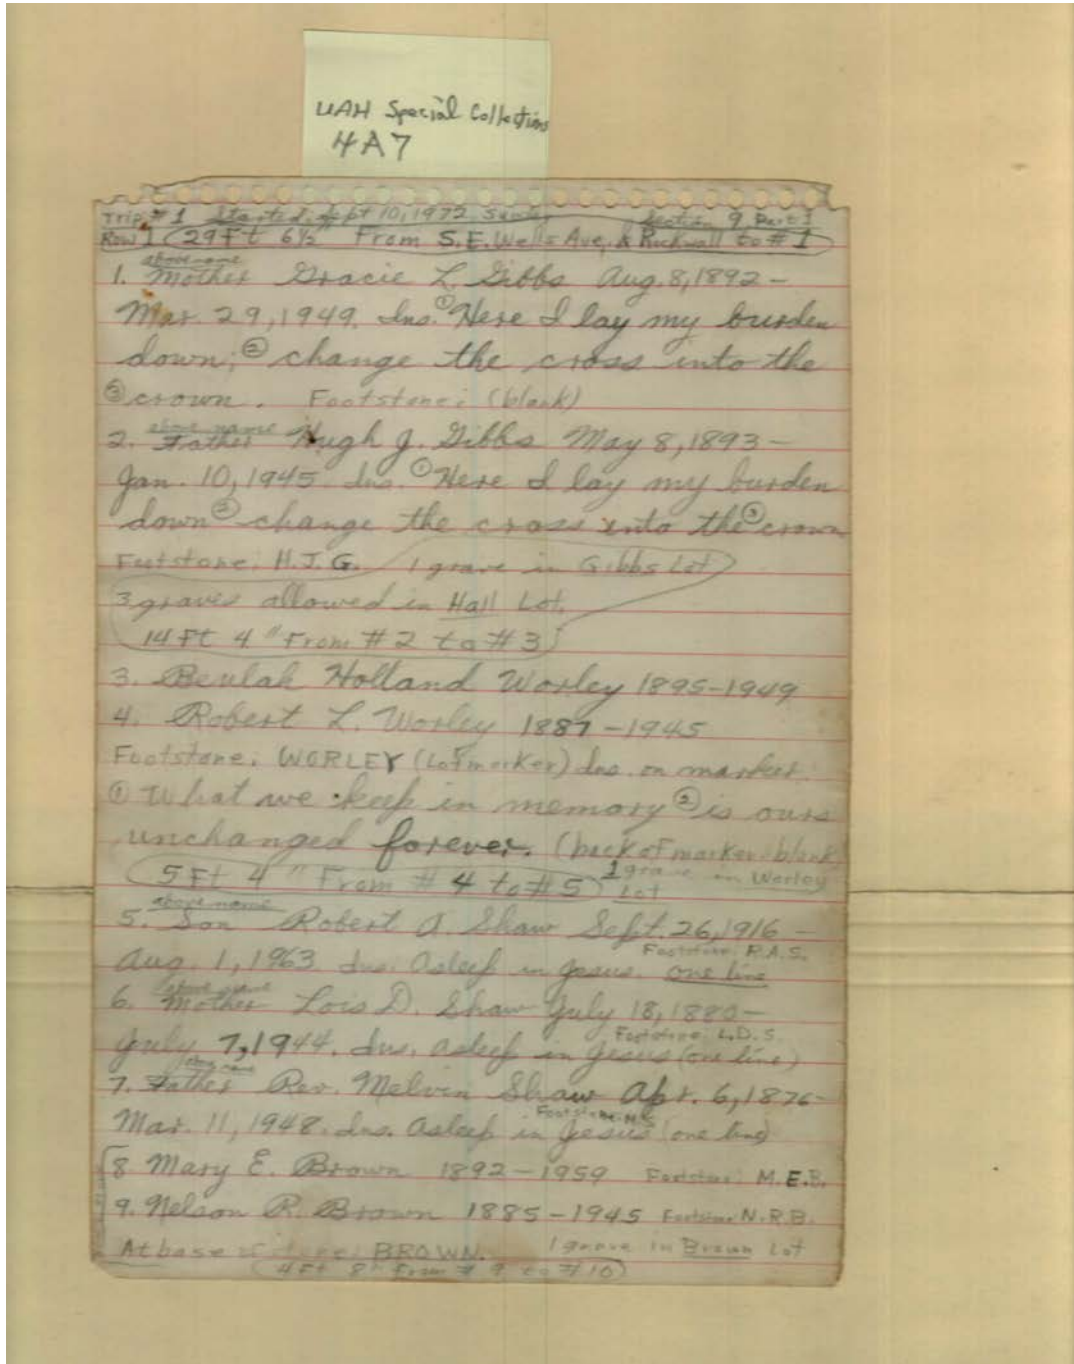 UAH Special Collections
4A7
Trip #1 Started Sept 10, 1972 Sunday Section 9 Part I
Row 1 29 Ft 6½" From S.E. Wells Ave. & Rockwall to #1
above name
1. Mother Gracie L. Gibbs Aug. 8, 1892 -
Mar. 29, 1949. Ins. ① Here I lay my burden
down, ② change the cross into the
③ crown. Footstone: (blank)
above name
2. Father Hugh J. Gibbs May 8, 1893 -
Jan. 10, 1945. Ins. ① Here I lay my burden
down ② change the cross into the ③ crown
Footstone: H.J.G. 1 grave in Gibbs Lot
3 graves allowed in Hall Lot.
14 Ft 4" From #2 to #3
3. Beulah Holland Worley 1895-1949
4. Robert L. Worley 1887-1945
Footstone: WORLEY (Lot marker) Ins. on marker.
① What we keep in memory ② is ours
unchanged forever. (back of marker blank)
5 Ft 4" From #4 to #5 1 grave in Worley
Lot
above name
5. Son Robert A. Shaw Sept. 26, 1916 -
Footstone: R.A.S.
Aug. 1, 1963 Ins. Asleep in Jesus. one line
above name
6. Mother Lois D. Shaw July 18, 1880 -
Footstone: L.D.S.
July 7, 1944. Ins. Asleep in Jesus (one line)
above name
7. Father Rev. Melvin Shaw Apr. 6, 1876 -
Footstone: M.S.
Mar. 11, 1948. Ins. Asleep in Jesus (one line)
8 Mary E. Brown 1892-1959 Footstone: M.E.B.
9. Nelson R. Brown 1885-1945 Footstone: N.R.B.
At base of stone: BROWN. 1 grave in Brown Lot
4 Ft 8" From #9 to #10